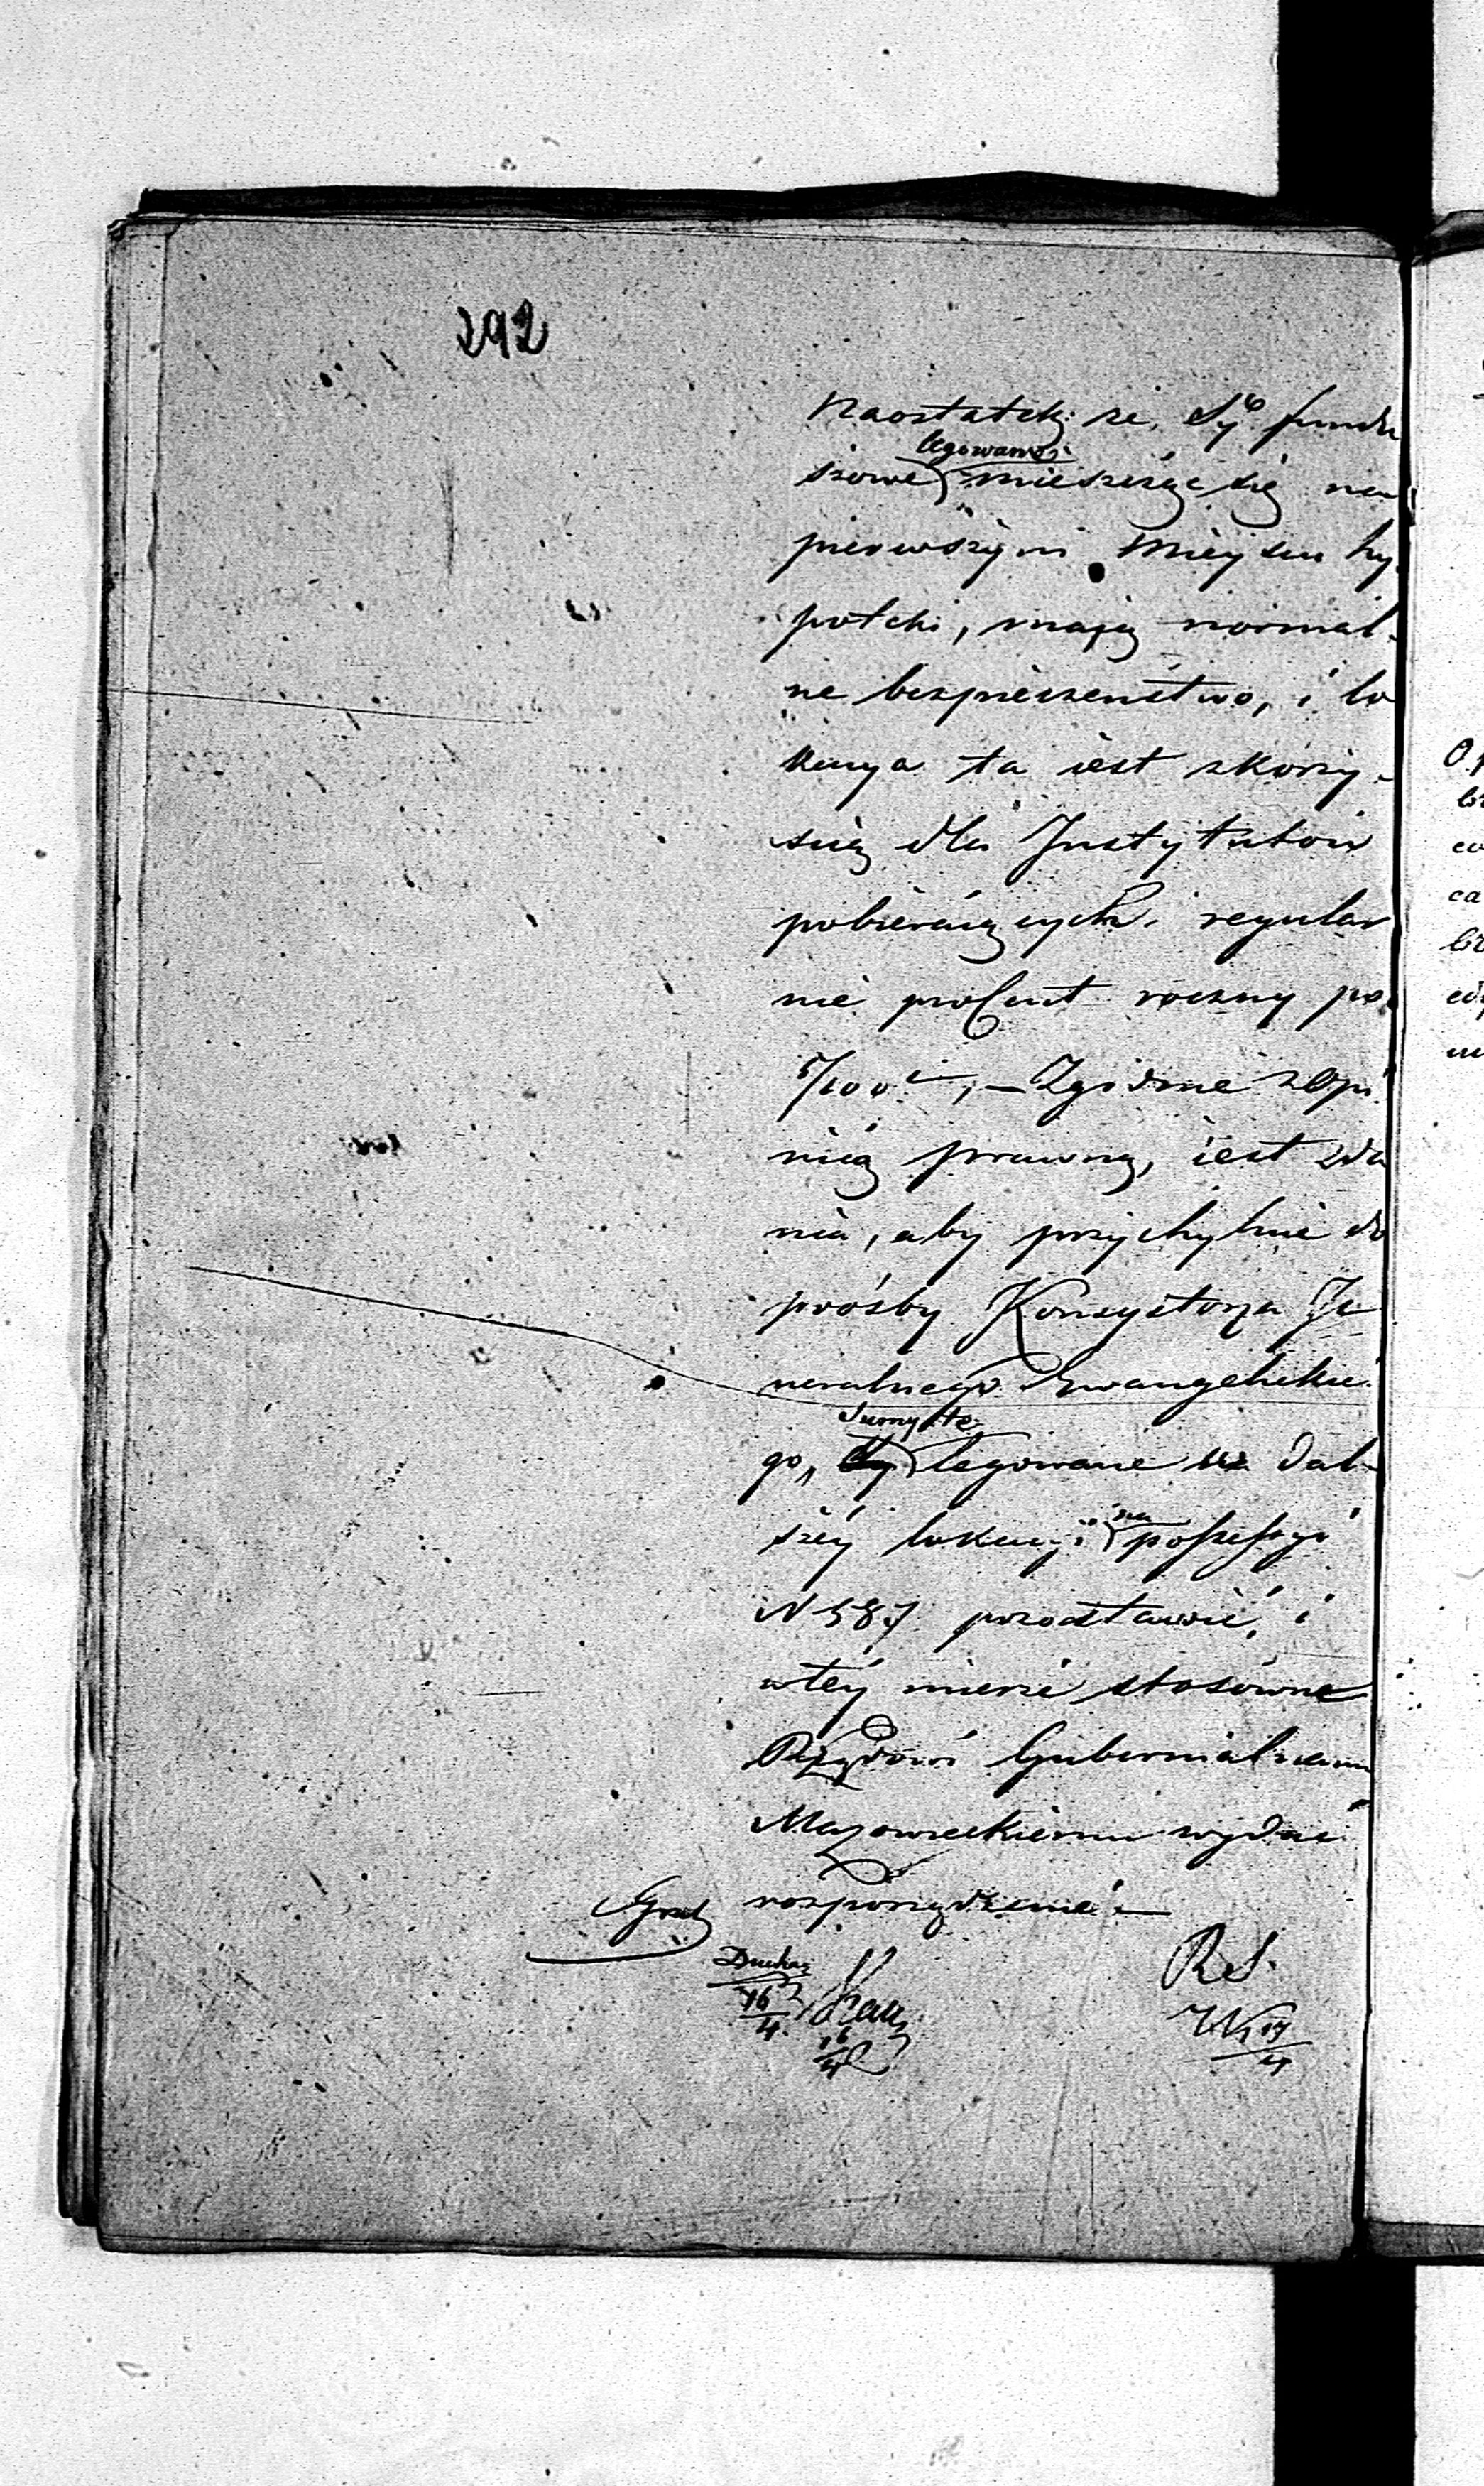 292
Naostatek że Sy fundu
legowane
szowe mieszcząc się na
pierwszym miejscu hy.
poteki, mają normal-
ne bezpieczeństwo, i lo
kacya ta iest z korzy-
ścią dla Instytutów
pobieraiących regular
nie procent roczny po
5/100 i, – Zgodnie z Opi
nią prawną, iest zda
nia, aby przychylnie do
prośby Konsystorza Je
neralnego Ewangelickie
Sumy te
go, legowane na dal-
na
széy lokacyi possessyi
N 587 pozostawić, i
w téy mierze stosowne
Rządowi Gubernialnemu
Mazowieckiemu wydać
rozporządzenie
16/4
16/4
R S.
17/4